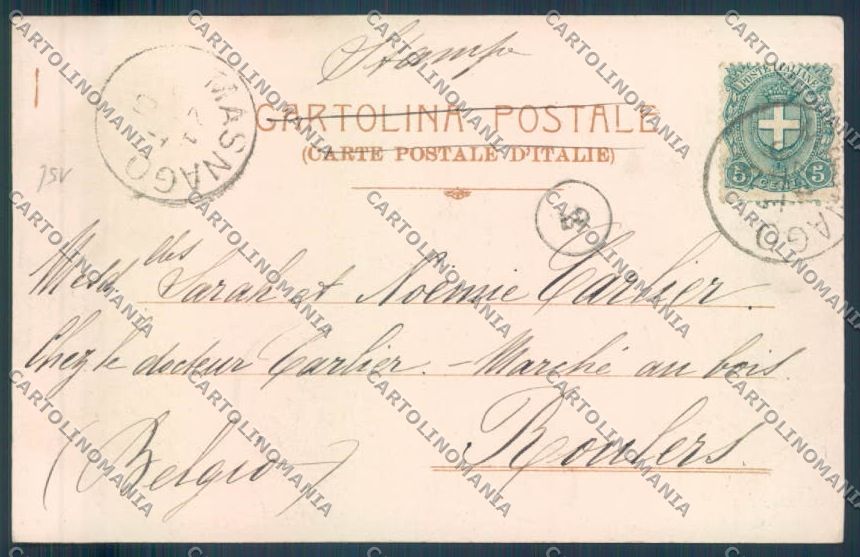 Stampe
CARTOLINA POSTALE
(CARTE POSTALE D'ITALIE)
MASNAGO
POSTE ITALIANE
5 CENT. 5
Mesdlles Sarah et Noëmie Carlier.
Chez le docteur Carlier. – Marché au bois.
Roulers.
(Belgio)
CARTOLINOMANIA